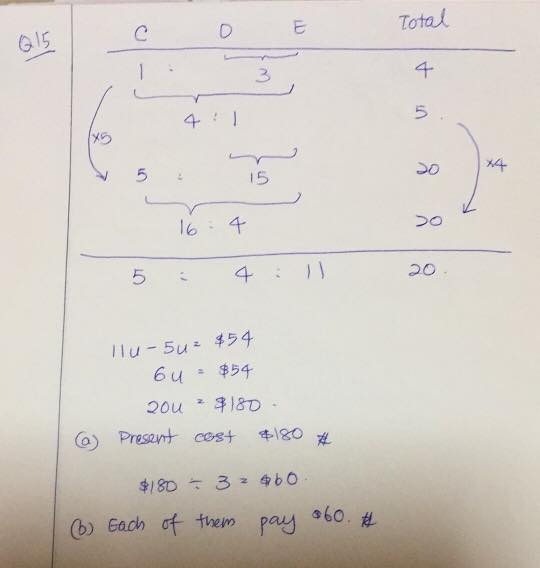 Q15
C D E Total
1 : 3 4
4 : 1 5
×5 ×4
5 : 15 20
16 : 4 20
5 : 4 : 11 20
11u - 5u = $54
6u = $54
20u = $180
(a) Present cost $180 #
$180 ÷ 3 = $60
(b) Each of them pay $60. #